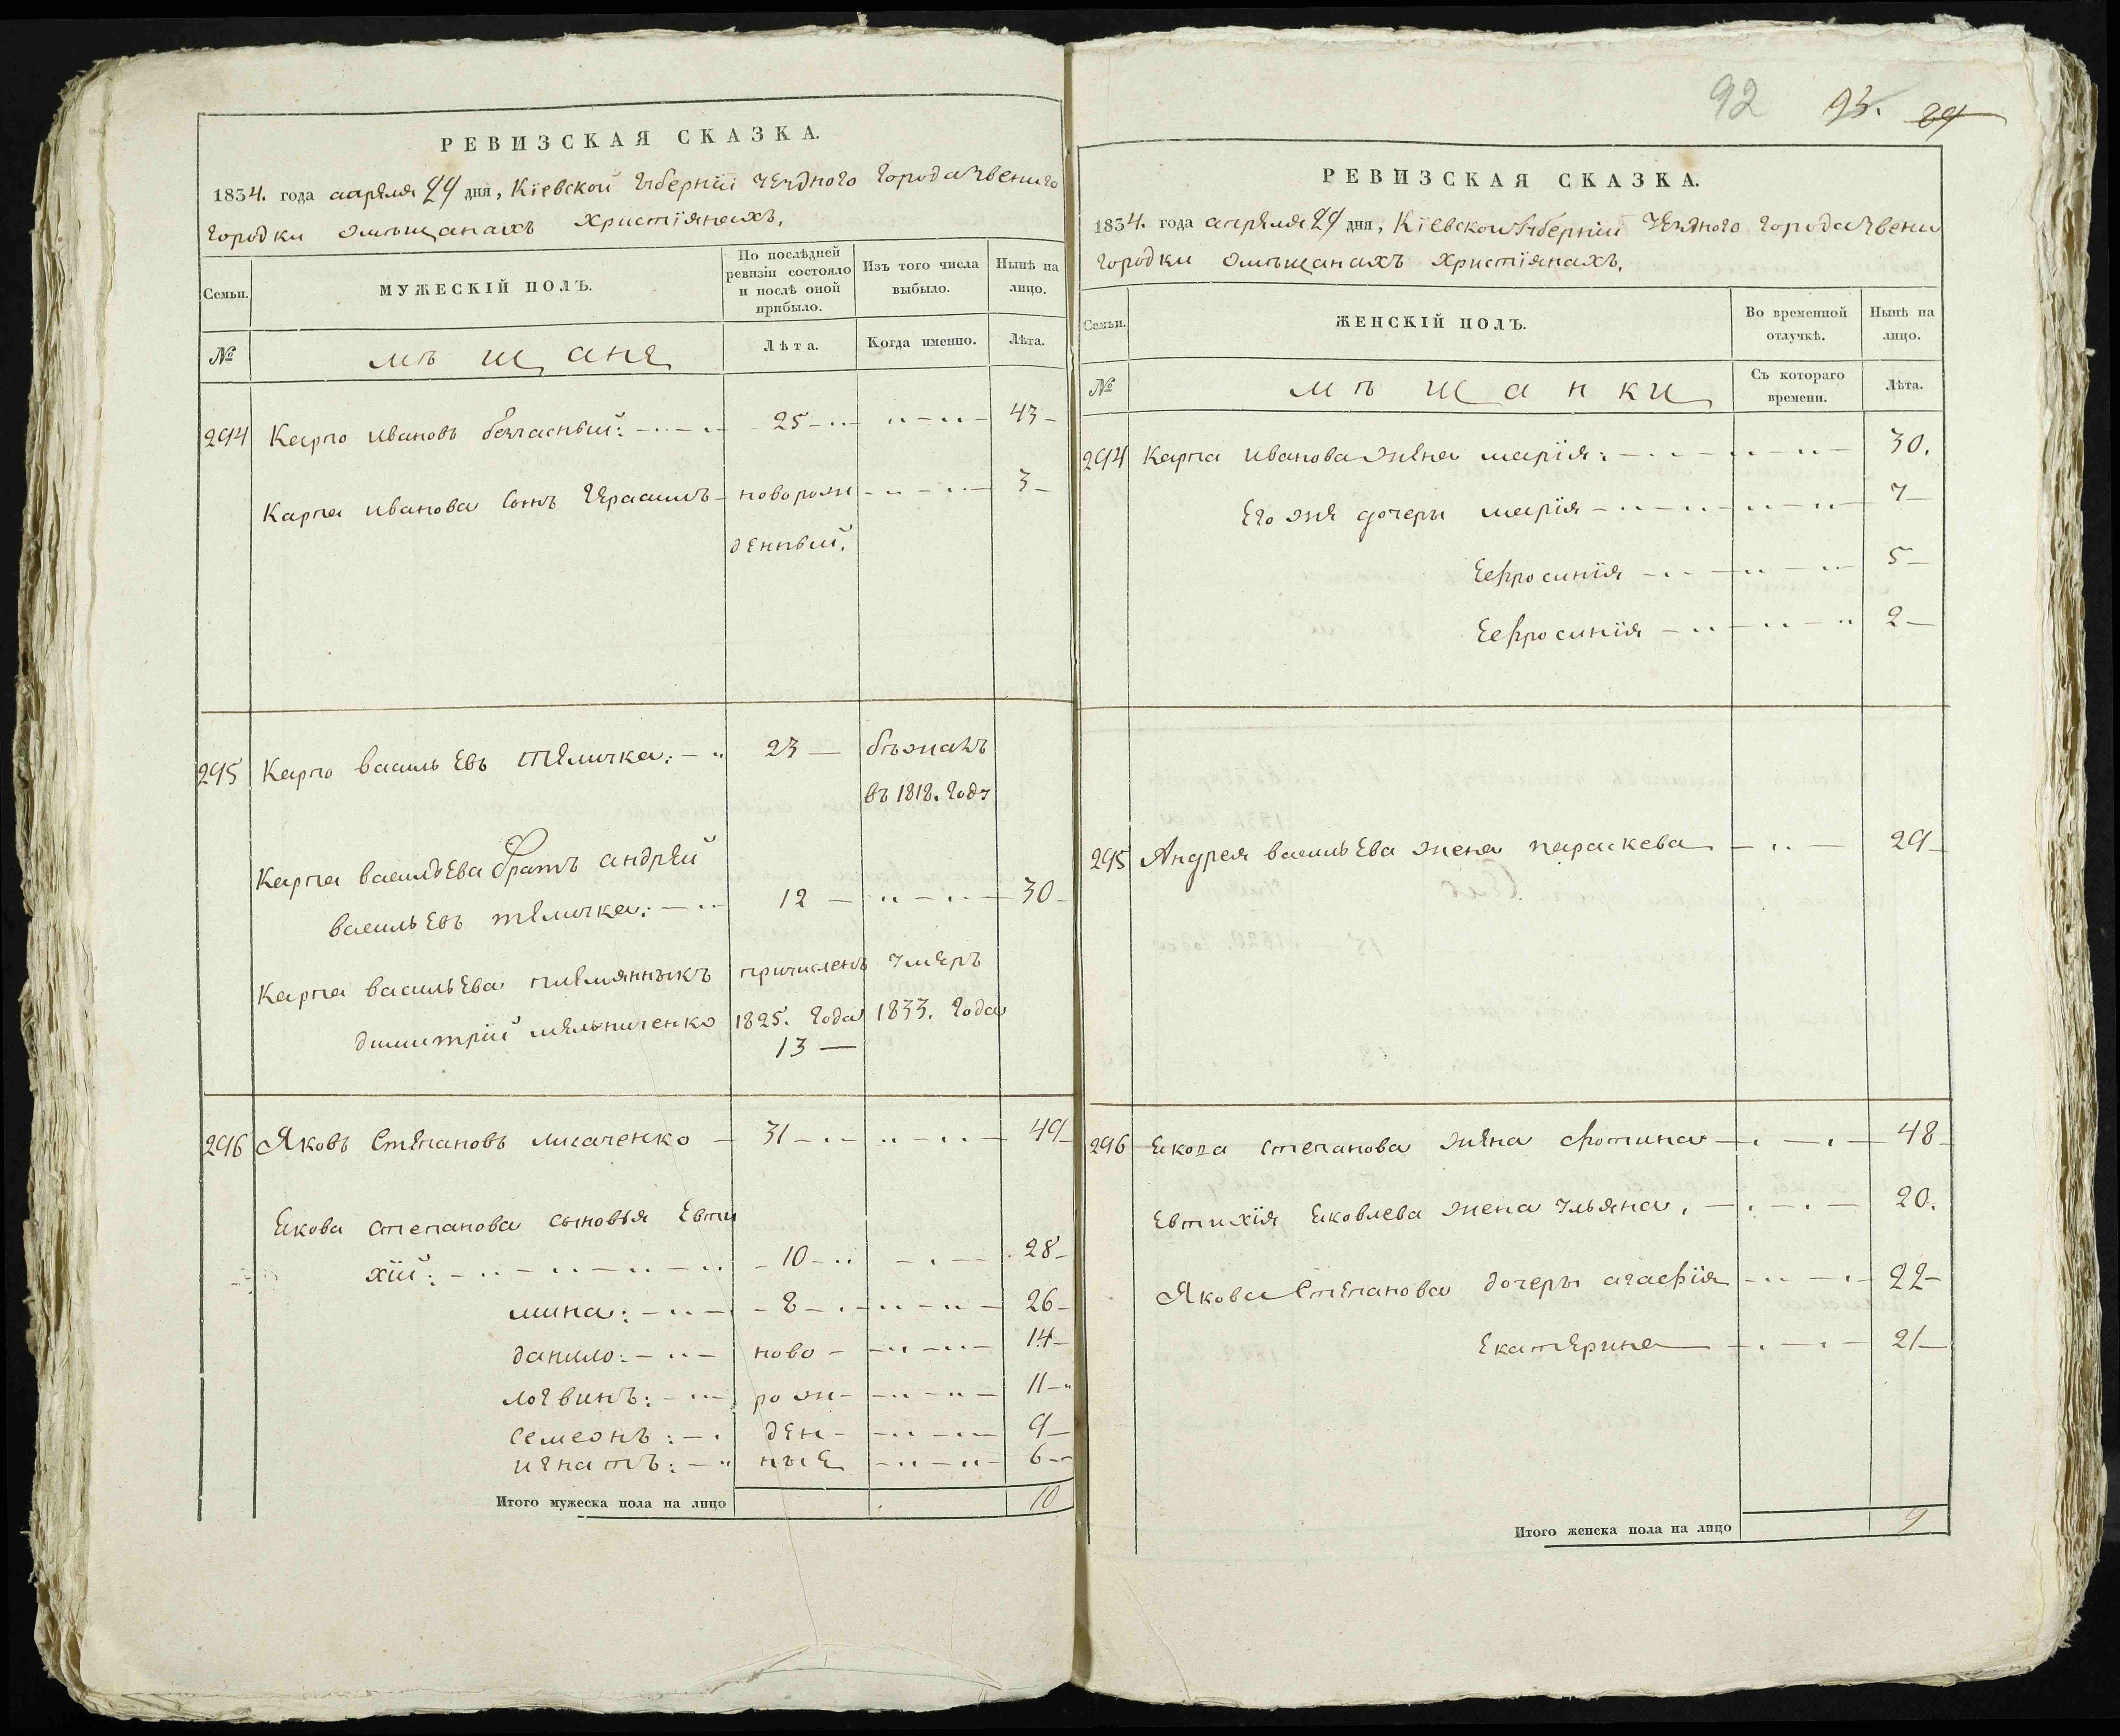 92 93. 89
РЕВИЗСКАЯ СКАЗКА.
1834. года апреля 29 дня, Кіевской Губерніи уезного города Звениго
городки омещанахъ христіянахъ.
Семьи. МУЖЕСКІЙ ПОЛЪ. По послѣдней ревизіи состояло и послѣ оной прибыло. Изъ того числа выбыло. Нынѣ на лицо.
№ мѣщане Лѣта. Когда именно. Лѣта.
294 Карпо Ивановъ 25 43
Карпа Иванова сынъ Герасимъ новорож 3
денный.
295 Карпо Васильевъ Теличка: 23 бѣжалъ
въ 1818. году
Карпа Васильева братъ андрей
Васильевъ теличка: 12 30
Карпа Васильева племянныкъ причисленъ умеръ
димитрій мельниченко 1825. года 1833. года
13
296 Яковъ Степановъ лисаченко 31 49
Якова Степанова сыновья Евти
хій: 10 28
мина: 8 26
данило: ново 14
логвинъ: рож 11
семеонъ: ден 9
игнатъ: ные 6
Итого мужеска пола на лицо 10
РЕВИЗСКАЯ СКАЗКА.
1834. года апреля 29 дня, Кіевской Губерніи уезного города Звени
городки омѣщанахъ христіянахъ.
Семьи. ЖЕНСКІЙ ПОЛЪ. Во временной отлучкѣ. Нынѣ на лицо.
№ мѣщанки Съ котораго времени. Лѣта.
294 Карпа Иванова жена марія: 30.
Его же дочеры марія 7
Еефросинія 5
Еефросинія 2
295 Андрея васильева жена параскева 29
296 Якова степанова жена фотина 48
Евтихія Яковлева жена ульяна. 20.
Якова Степанова дочеры агафія 22
Екатерина 21
Итого женска пола на лицо 9